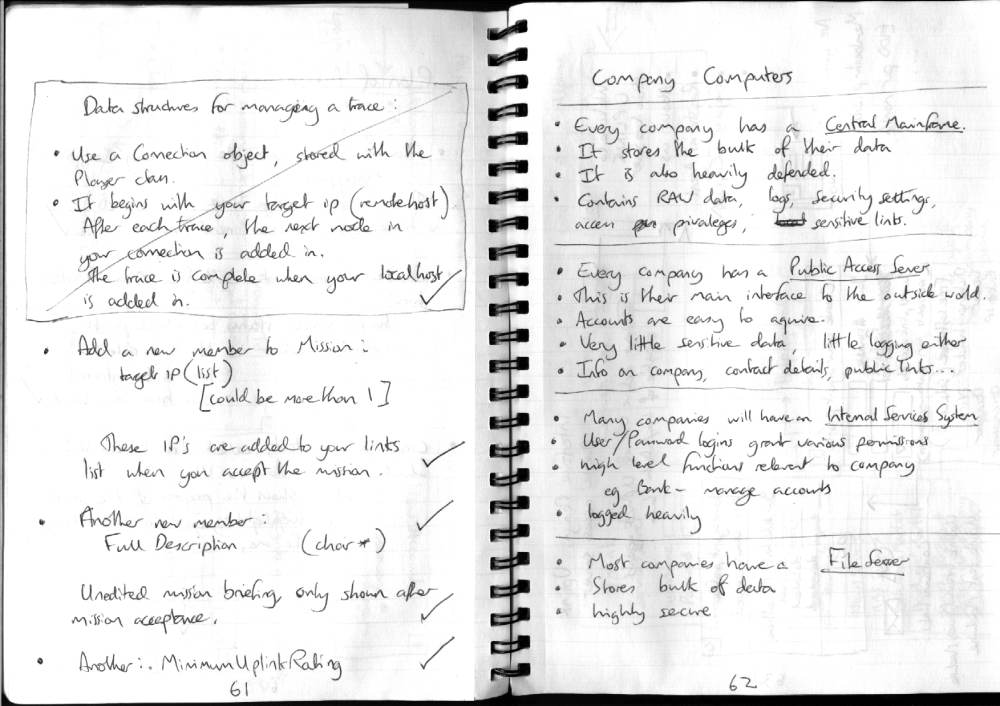 Data structures for managing a trace :
• Use a Connection object, stored with the
Player class.
• It begins with your target ip (remotehost)
After each trace, the next node in
your connection is added in.
The trace is complete when your localhost
is added in.
• Add a new member to Mission :
target ip (list)
[could be more than 1]
These IP's are added to your links
list when you accept the mission.
• Another new member :
Full Description (char *)
Unedited mission briefing, only shown after
mission acceptance.
• Another :. MinimumUplinkRating
61
Company Computers
• Every company has a Central Mainframe.
• It stores the bulk of their data
• It is also heavily defended.
• Contains RAW data, logs, security settings,
access privaleges, sensitive links.
• Every company has a Public Access Sever
• This is their main interface to the outside world.
• Accounts are easy to aquire.
• Very little sensitive data, little logging either
• Info on company, contact details, public links...
• Many companies will have an Internal Services System
• User/Password logins grant various permissions
• High level functions relevent to company
eg Bank - manage accounts
• logged heavily
• Most companies have a File Server
• Stores bulk of data
• highly secure
62